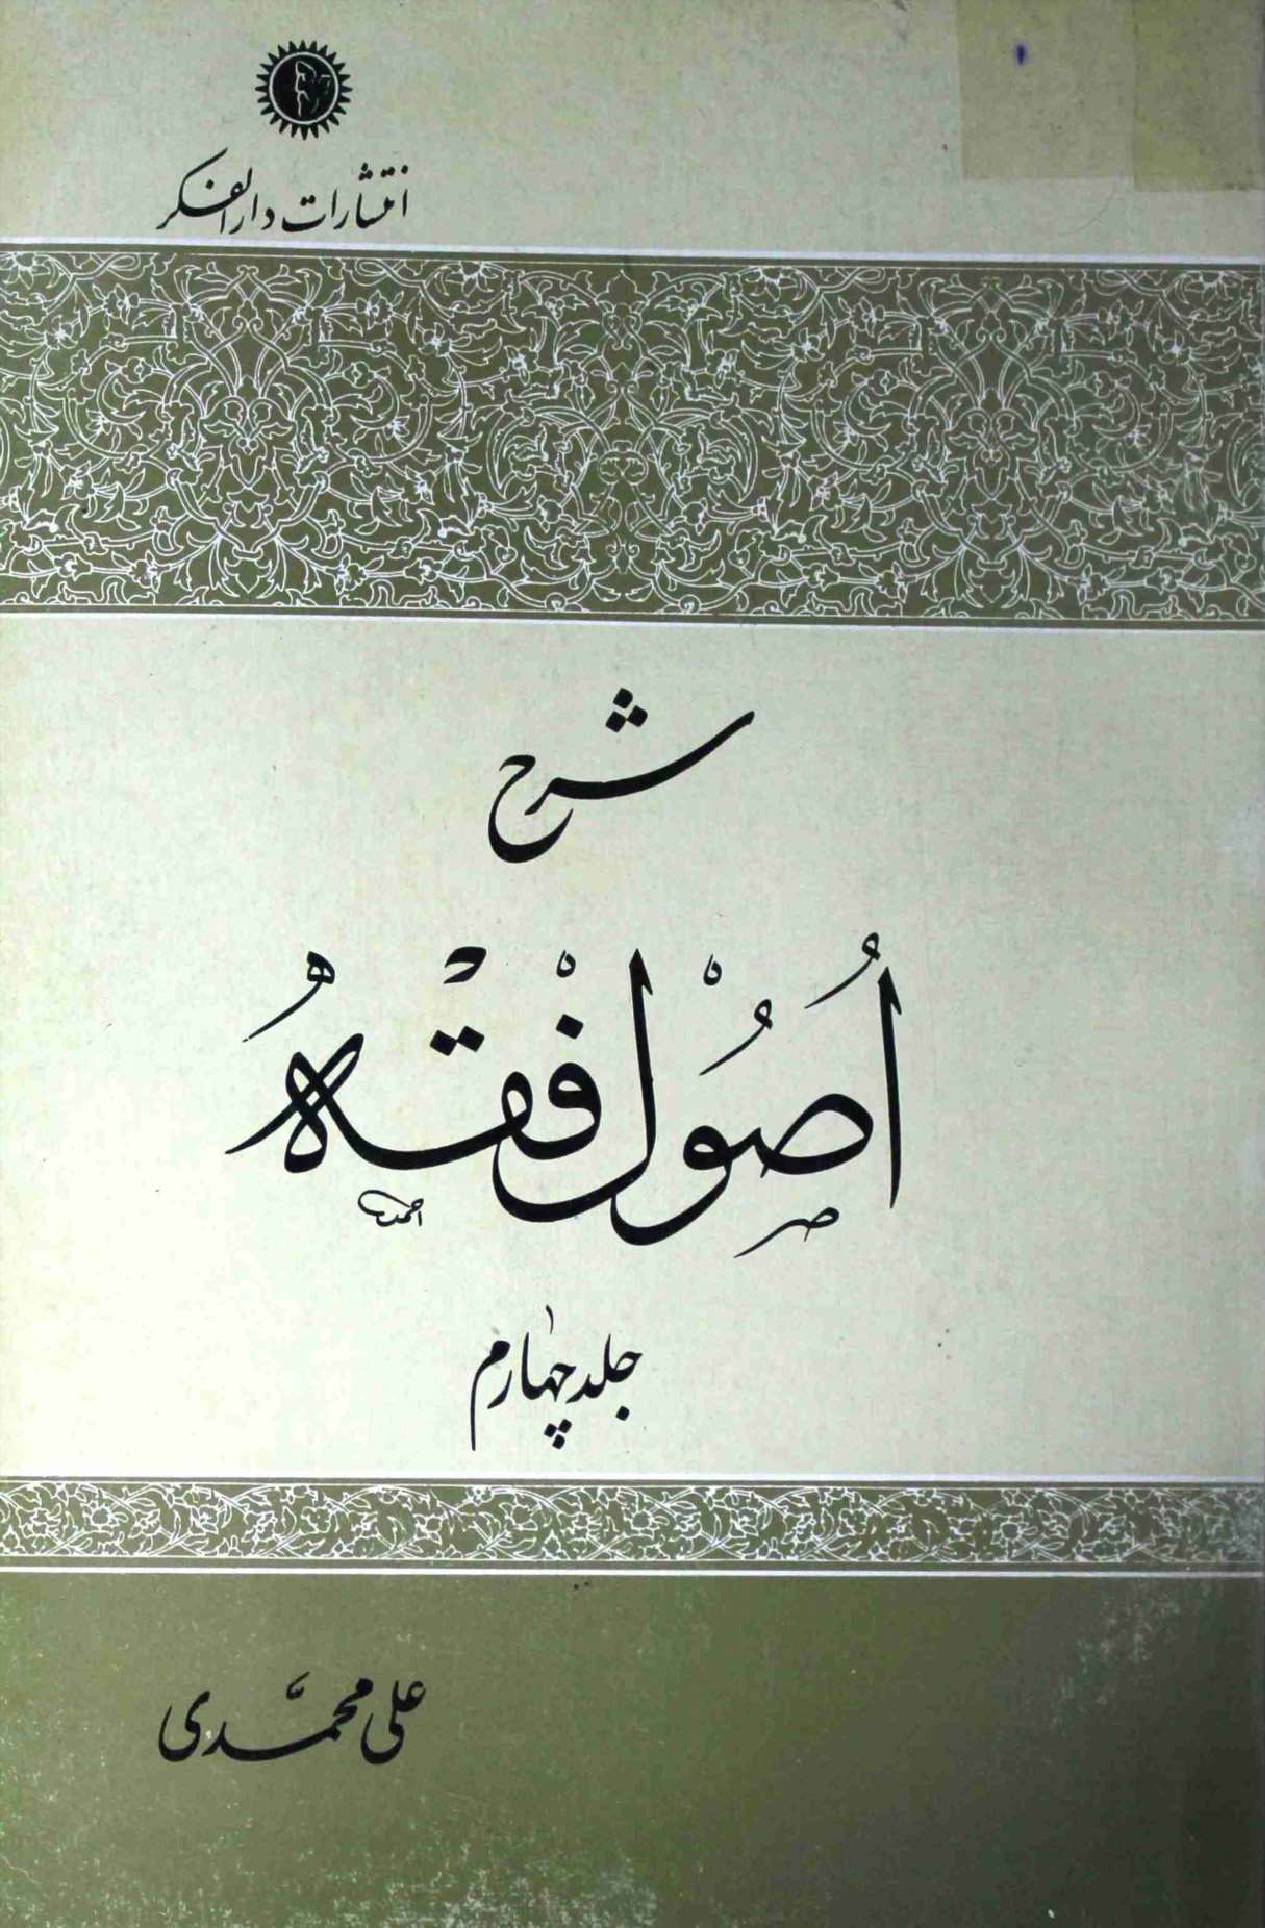 انتشارات دارالفکر
شرح
اُصُوْل فْقْهُ
جلد چهارم
علی محمّدی